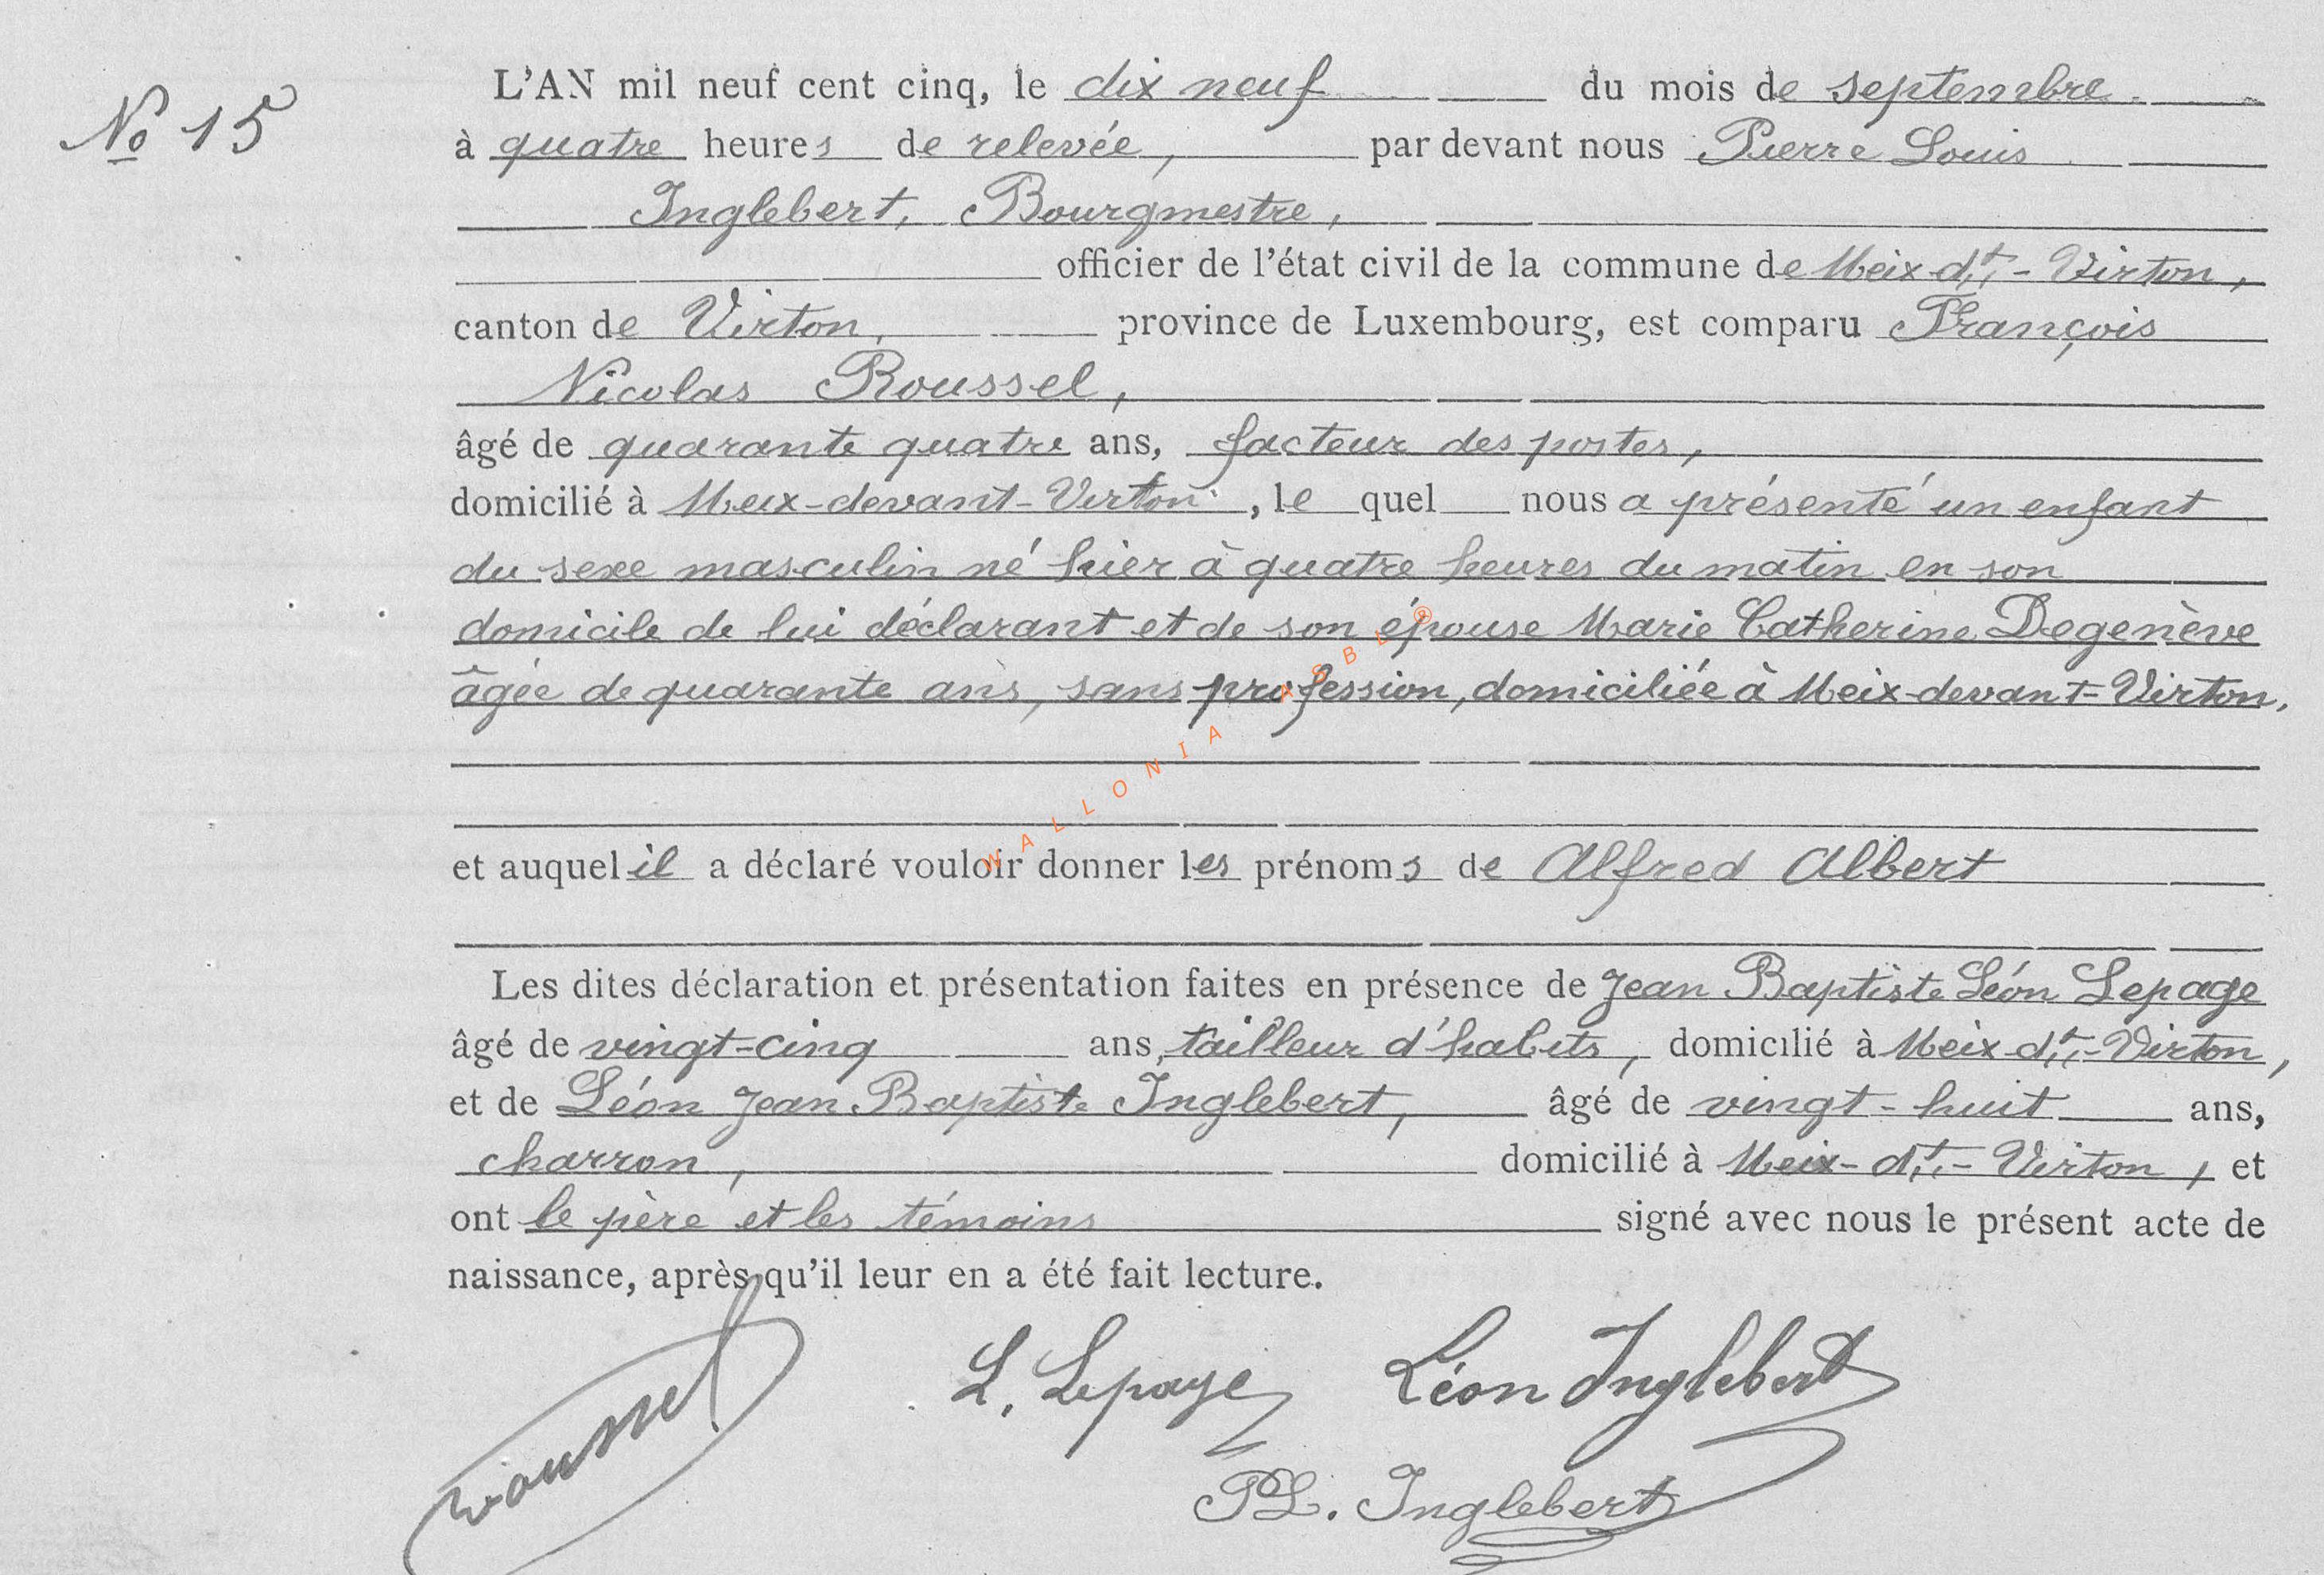 No 15
L'AN mil neuf cent cinq, le dix neuf du mois de septembre
à quatre heures de relevée, par devant nous Pierre Louis
Inglebert, Bourgmestre,
officier de l'état civil de la commune de Meix-dt-Virton,
canton de Virton, province de Luxembourg, est comparu François
Nicolas Roussel,
âgé de quarante quatre ans, facteur des postes,
domicilié à Meix-devant-Virton, le quel nous a présenté un enfant
du sexe masculin né hier à quatre heures du matin en son
domicile de lui déclarant et de son épouse Marie Catherine Degenève
âgée de quarante ans, sans profession, domiciliée à Meix-devant-Virton.
WALLONIA ASBL®
et auquel il a déclaré vouloir donner les prénoms de Alfred Albert
Les dites déclaration et présentation faites en présence de Jean Baptiste Léon Lepage
âgé de vingt-cinq ans, tailleur d'habits, domicilié à Meix-dt-Virton,
et de Léon Jean Baptiste Inglebert, âgé de vingt-huit ans,
charron, domicilié à Meix-dt-Virton, et
ont le père et les témoins signé avec nous le présent acte de
naissance, après qu'il leur en a été fait lecture.
Roussel L. Lepage Léon Inglebert
PL. Inglebert